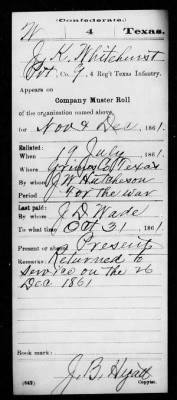 (Confederate.)
W 4 Texas.
J. K. Whitehurst
Pvt, Co. G, 4 Reg't Texas Infantry.
Appears on
Company Muster Roll
of the organization named above,
for Nov & Dec, 1861.
Enlisted:
When 19 July, 1861.
Where Grimes Co Texas
By whom J W Hutcheson
Period for the war
Last paid:
By whom J. D. Wade
To what time Oct 31, 1861.
Present or absent Present
Remarks: Returned to
service on the 26
Dec 1861
Book mark:
J. B. Hyatt
(642) Copyist.